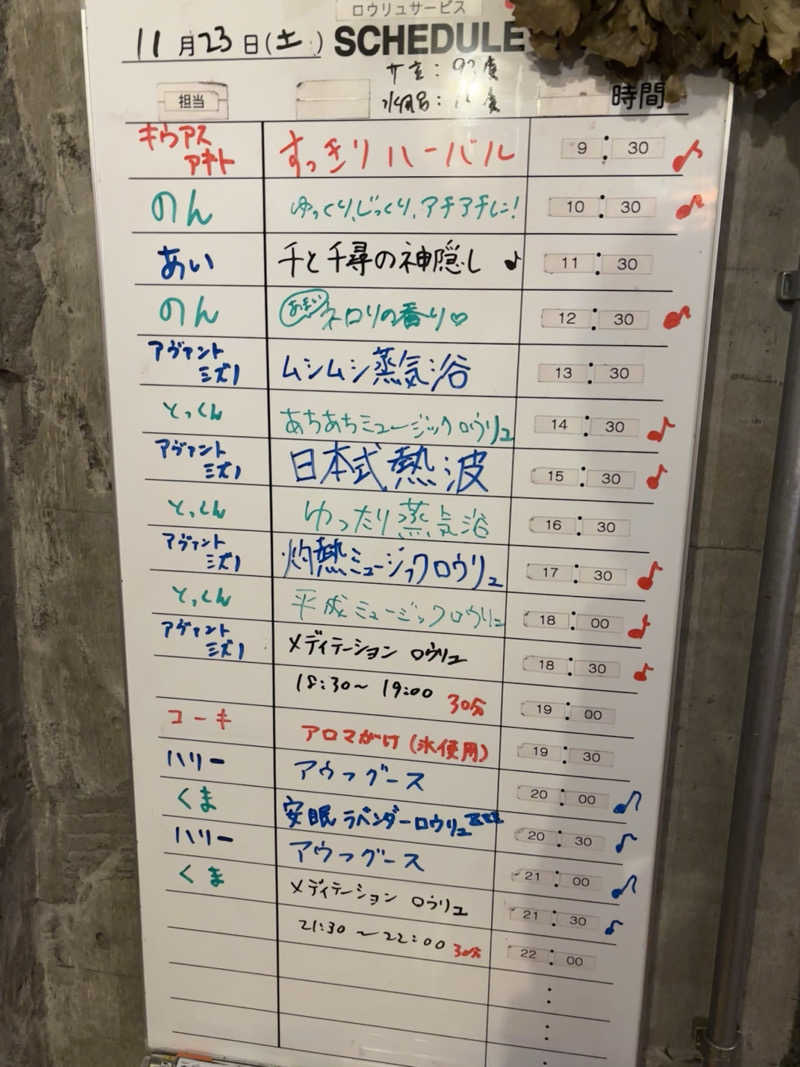 ロウリュサービス
11月23日(土) SCHEDULE
担当 時間
キウアス アキト すっきりハーバル 9:30
のん ゆっくり、じっくり、アチアチに! 10:30
あい 千と千尋の神隠し♪ 11:30
のん あまい ネロリの香り♡ 12:30
アヴァント ミズノ ムシムシ蒸気浴 13:30
とっくん あちあちミュージックロウリュ 14:30
アヴァント ミズノ 日本式熱波 15:30
とっくん ゆったり蒸気浴 16:30
アヴァント ミズノ 灼熱ミュージックロウリュ 17:30
とっくん 平成ミュージックロウリュ 18:00
アヴァント ミズノ メディテーション ロウリュ 18:30
18:30~19:00 30分 19:00
コーキ アロマがけ(氷使用) 19:30
ハリー アウフグース 20:00
くま 安眠ラベンダーロウリュzzz 20:30
ハリー アウフグース 21:00
くま メディテーション ロウリュ 21:30
21:30~22:00 30分 22:00